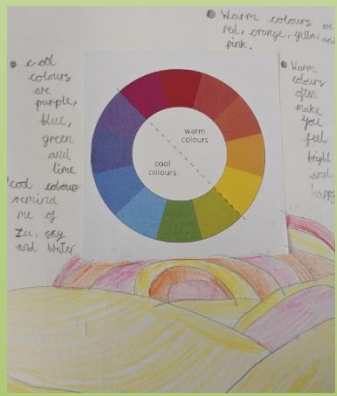 Warm colours are
red, orange, yellow and
pink.
cool
colours
are
purple,
blue,
green
and
lime
cool colours
remind
me of
sky
and water
warm
colours
cool
colours
Warm
colours
often
make
you
feel
bright
and
happy